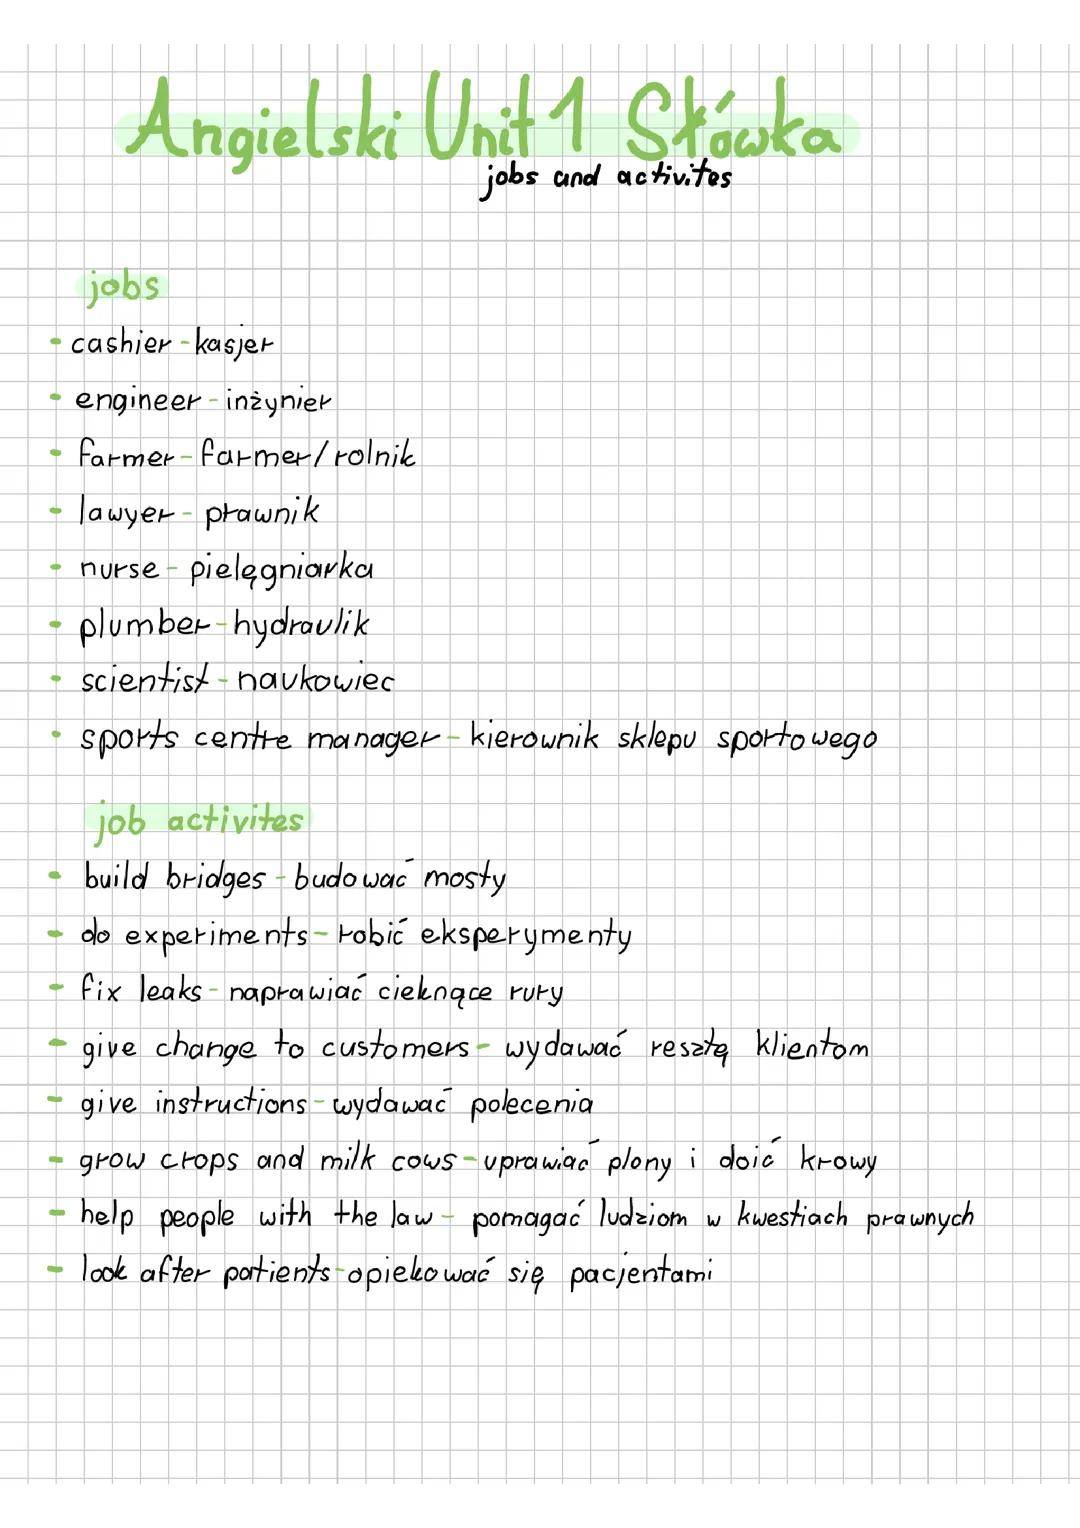 Angielski Unit 1 Słówka
jobs and activites
jobs
- cashier - kasjer
- engineer - inżynier
- farmer - farmer/rolnik
- lawyer - prawnik
- nurse - pielęgniarka
- plumber - hydraulik
- scientist - naukowiec
- sports centre manager - kierownik sklepu sportowego
job activites
- build bridges - budować mosty
- do experiments - robić eksperymenty
- fix leaks - naprawiać cieknące rury
- give change to customers - wydawać resztę klientom
- give instructions - wydawać polecenia
- grow crops and milk cows - uprawiać plony i doić krowy
- help people with the law - pomagać ludziom w kwestiach prawnych
- look after patients - opiekować się pacjentami